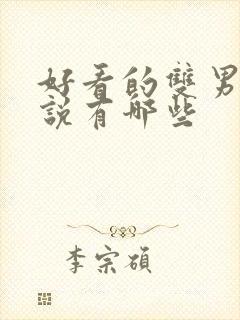 好看的雙男
說有哪些
李宗碩